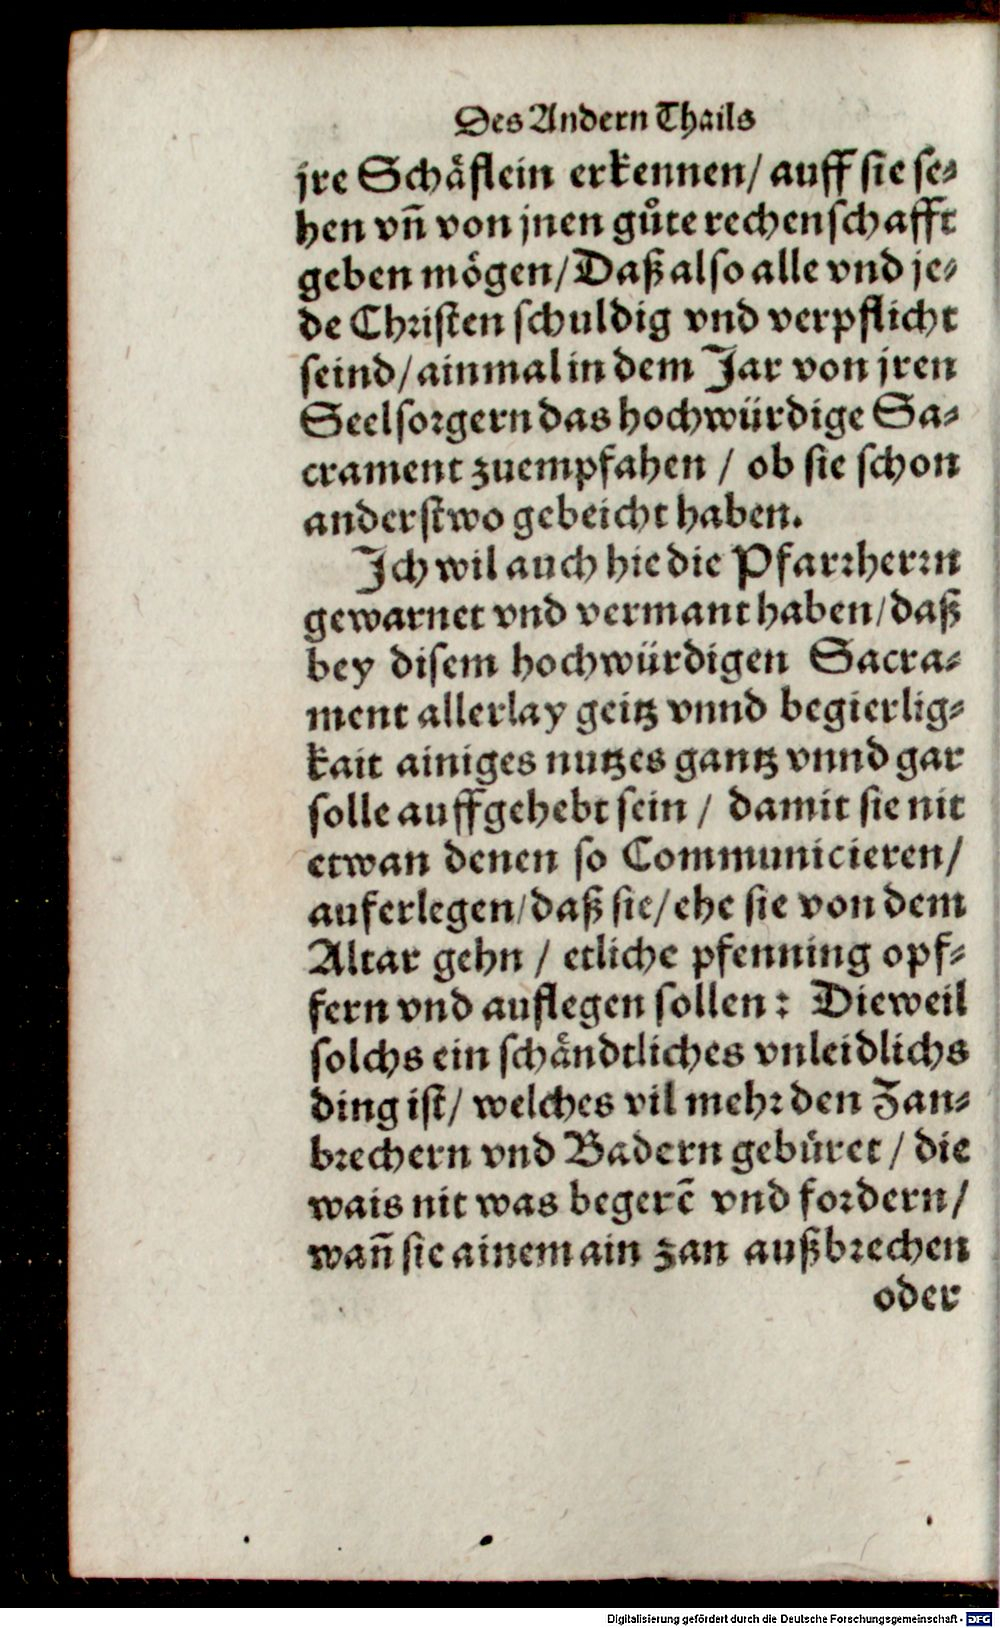 Des Andern Thails
jre Schäflein erkennen/ auff sie se⸗
hen vñ von jnen gůte rechenschafft
geben mögen/ Daß also alle vnd je⸗
de Christen schuldig vnd verpflicht
seind/ ainmal in dem Jar von jren
Seelsorgern das hochwürdige Sa⸗
crament zuempfahen / ob sie schon
anderstwo gebeicht haben.
Ich wil auch hie die Pfarrherrn
gewarnet vnd vermant haben/ daß
bey disem hochwürdigen Sacra⸗
ment allerlay geitz vnnd begierlig⸗
kait ainiges nutzes gantz vnnd gar
solle auffgehebt sein / damit sie nit
etwan denen so Communicieren/
auferlegen/ daß sie/ ehe sie von dem
Altar gehn / etliche pfenning opf⸗
fern vnd auflegen sollen: Dieweil
solchs ein schändtliches vnleidlichs
ding ist/ welches vil mehr den Zan⸗
brechern vnd Badern gebüret / die
wais nit was begerē vnd fordern/
wañ sie ainem ain zan außbrechen
oder
Digitalisierung gefördert durch die Deutsche Forschungsgemeinschaft - DFG